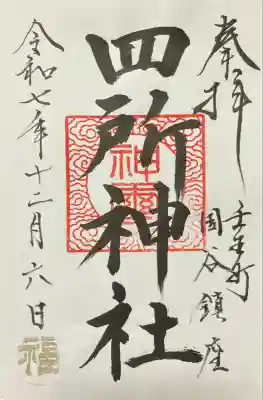 奉拝
壬生町
国谷鎮座
四所神社
令和七年十二月六日
福